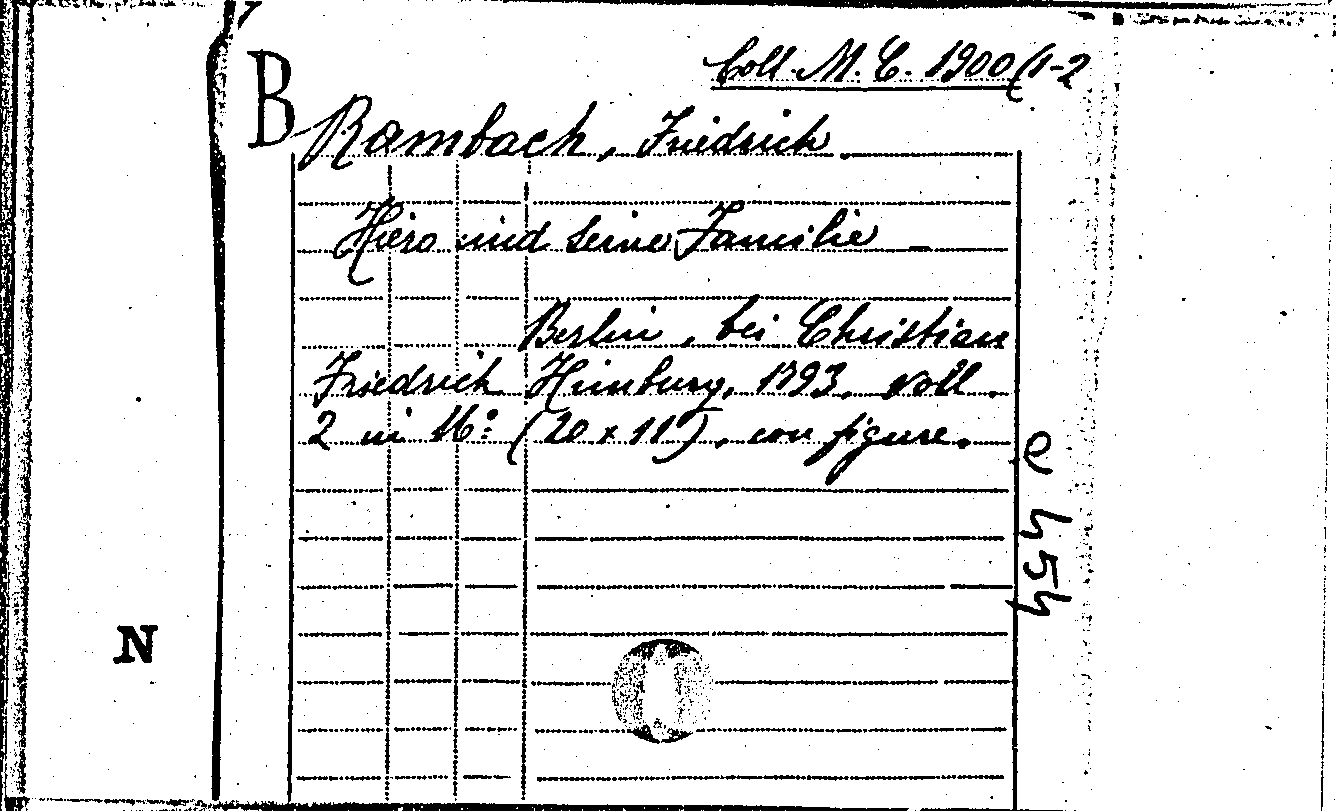 Coll. M. C. 1900/1-2
B
Rambach, Friedrich
Hiero und seine Familie –
Berlin, bei Christian
Friedrich Himburg, 1793, voll.
2 in 16º (20 x 11), con figure.
e 454
N